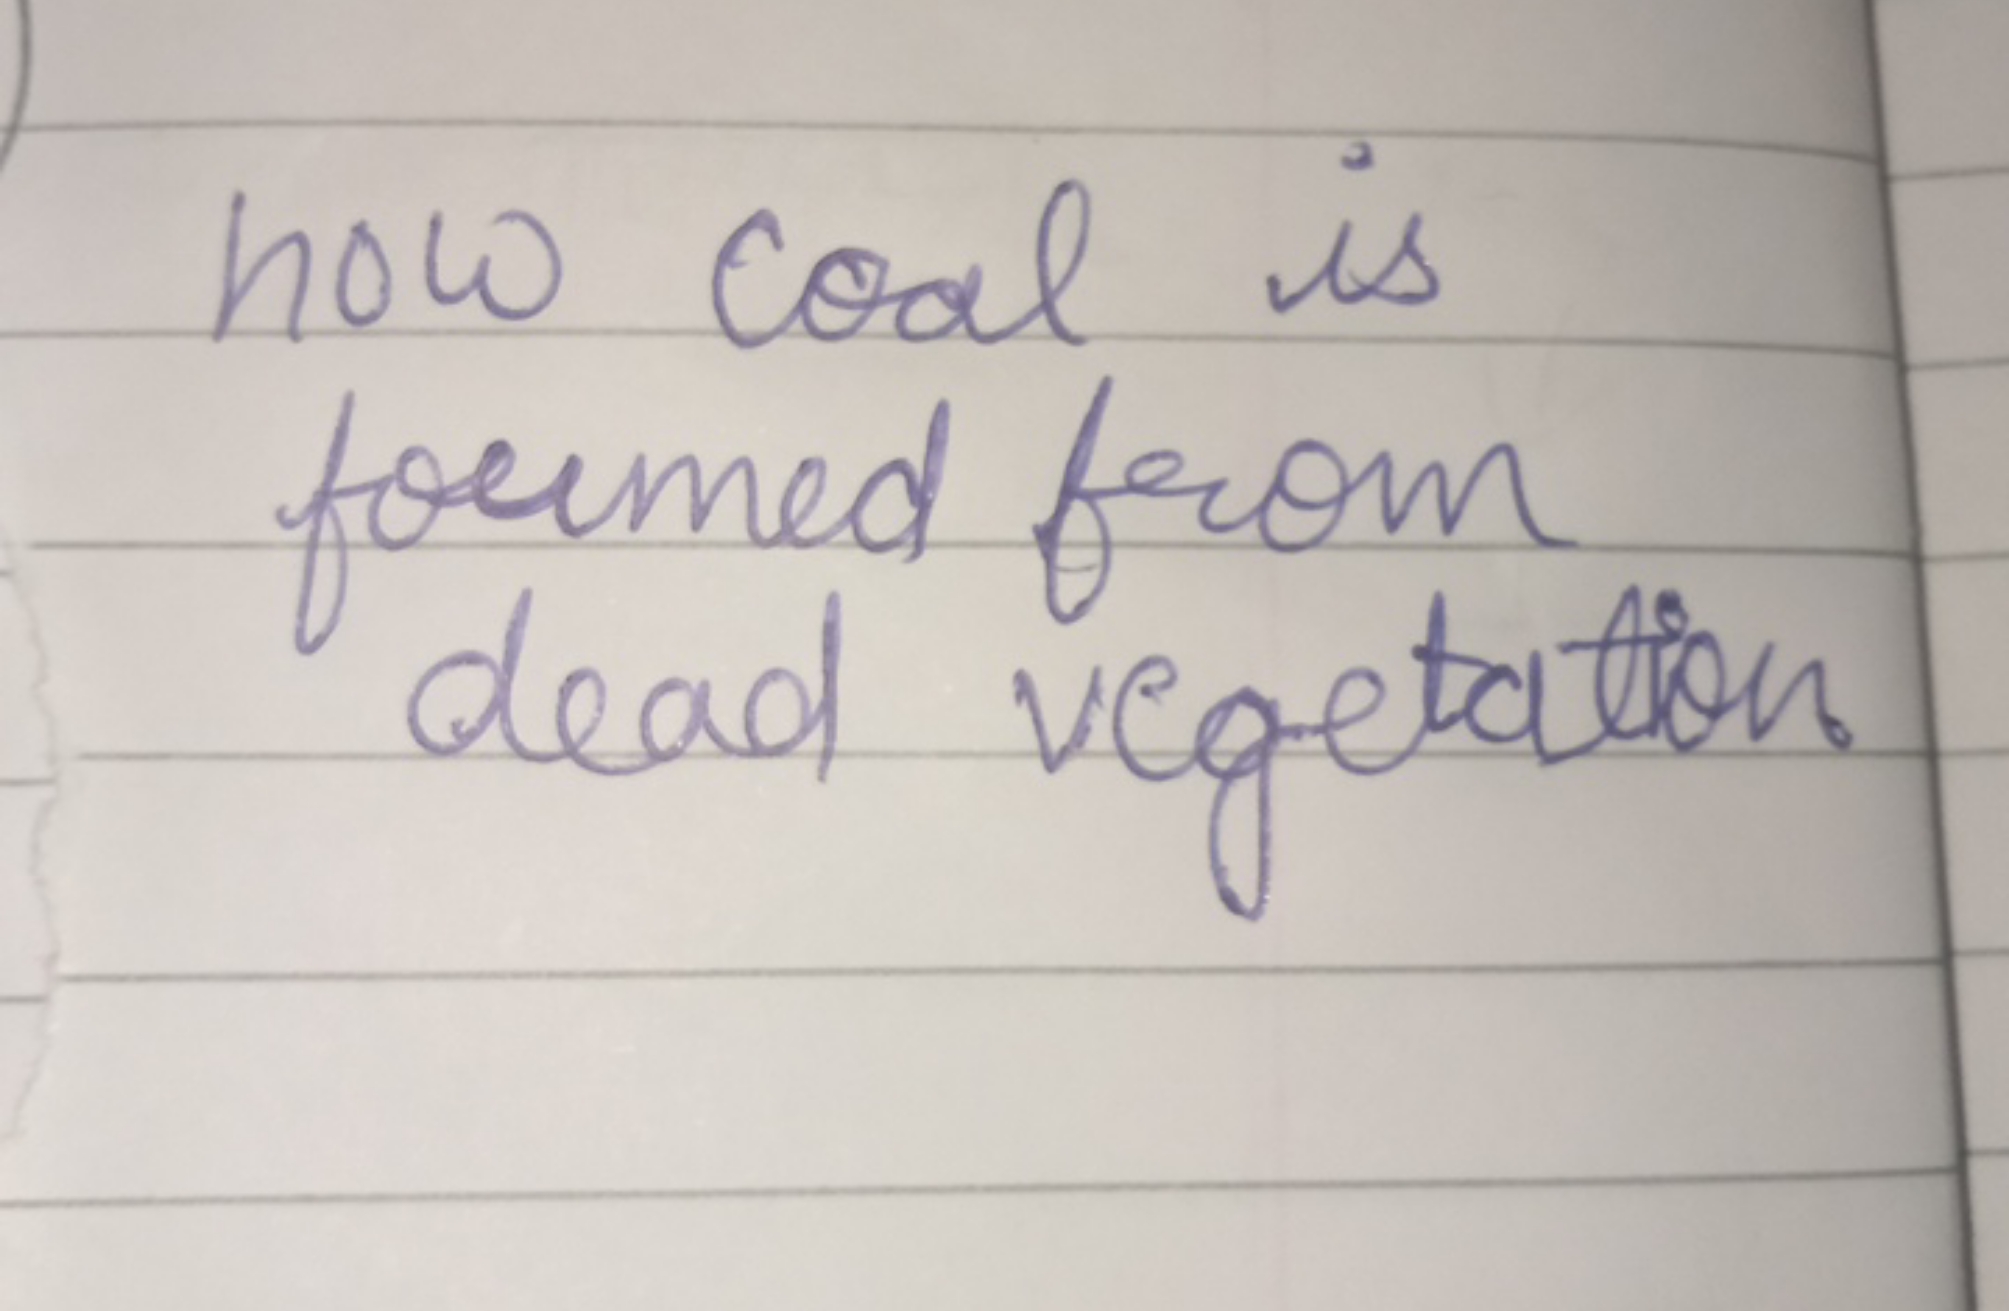 how coal is
formed from
dead vegetation